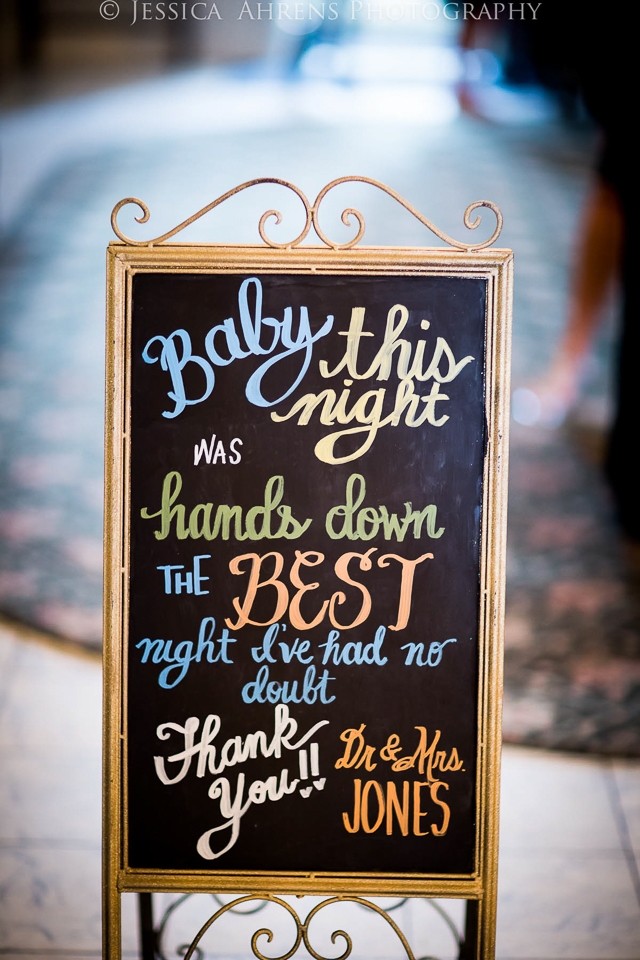 © Jessica Ahrens Photography
Baby this
night
WAS
hands down
THE BEST
night I've had no
doubt
Thank
You!!
Dr & Mrs.
JONES